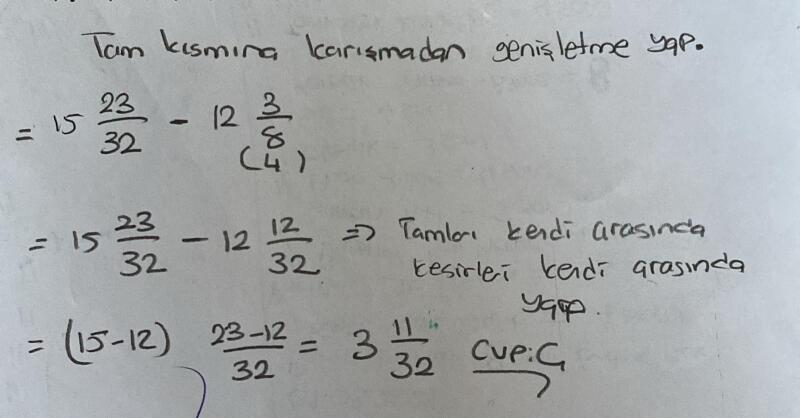 Tam kısmına karışmadan genişletme yap.
= 15 23/32 - 12 3/8
(4)
= 15 23/32 - 12 12/32 => Tamları kendi arasında
kesirleri kendi arasında
yap.
= (15-12) 23-12/32 = 3 11/32 CVP:C